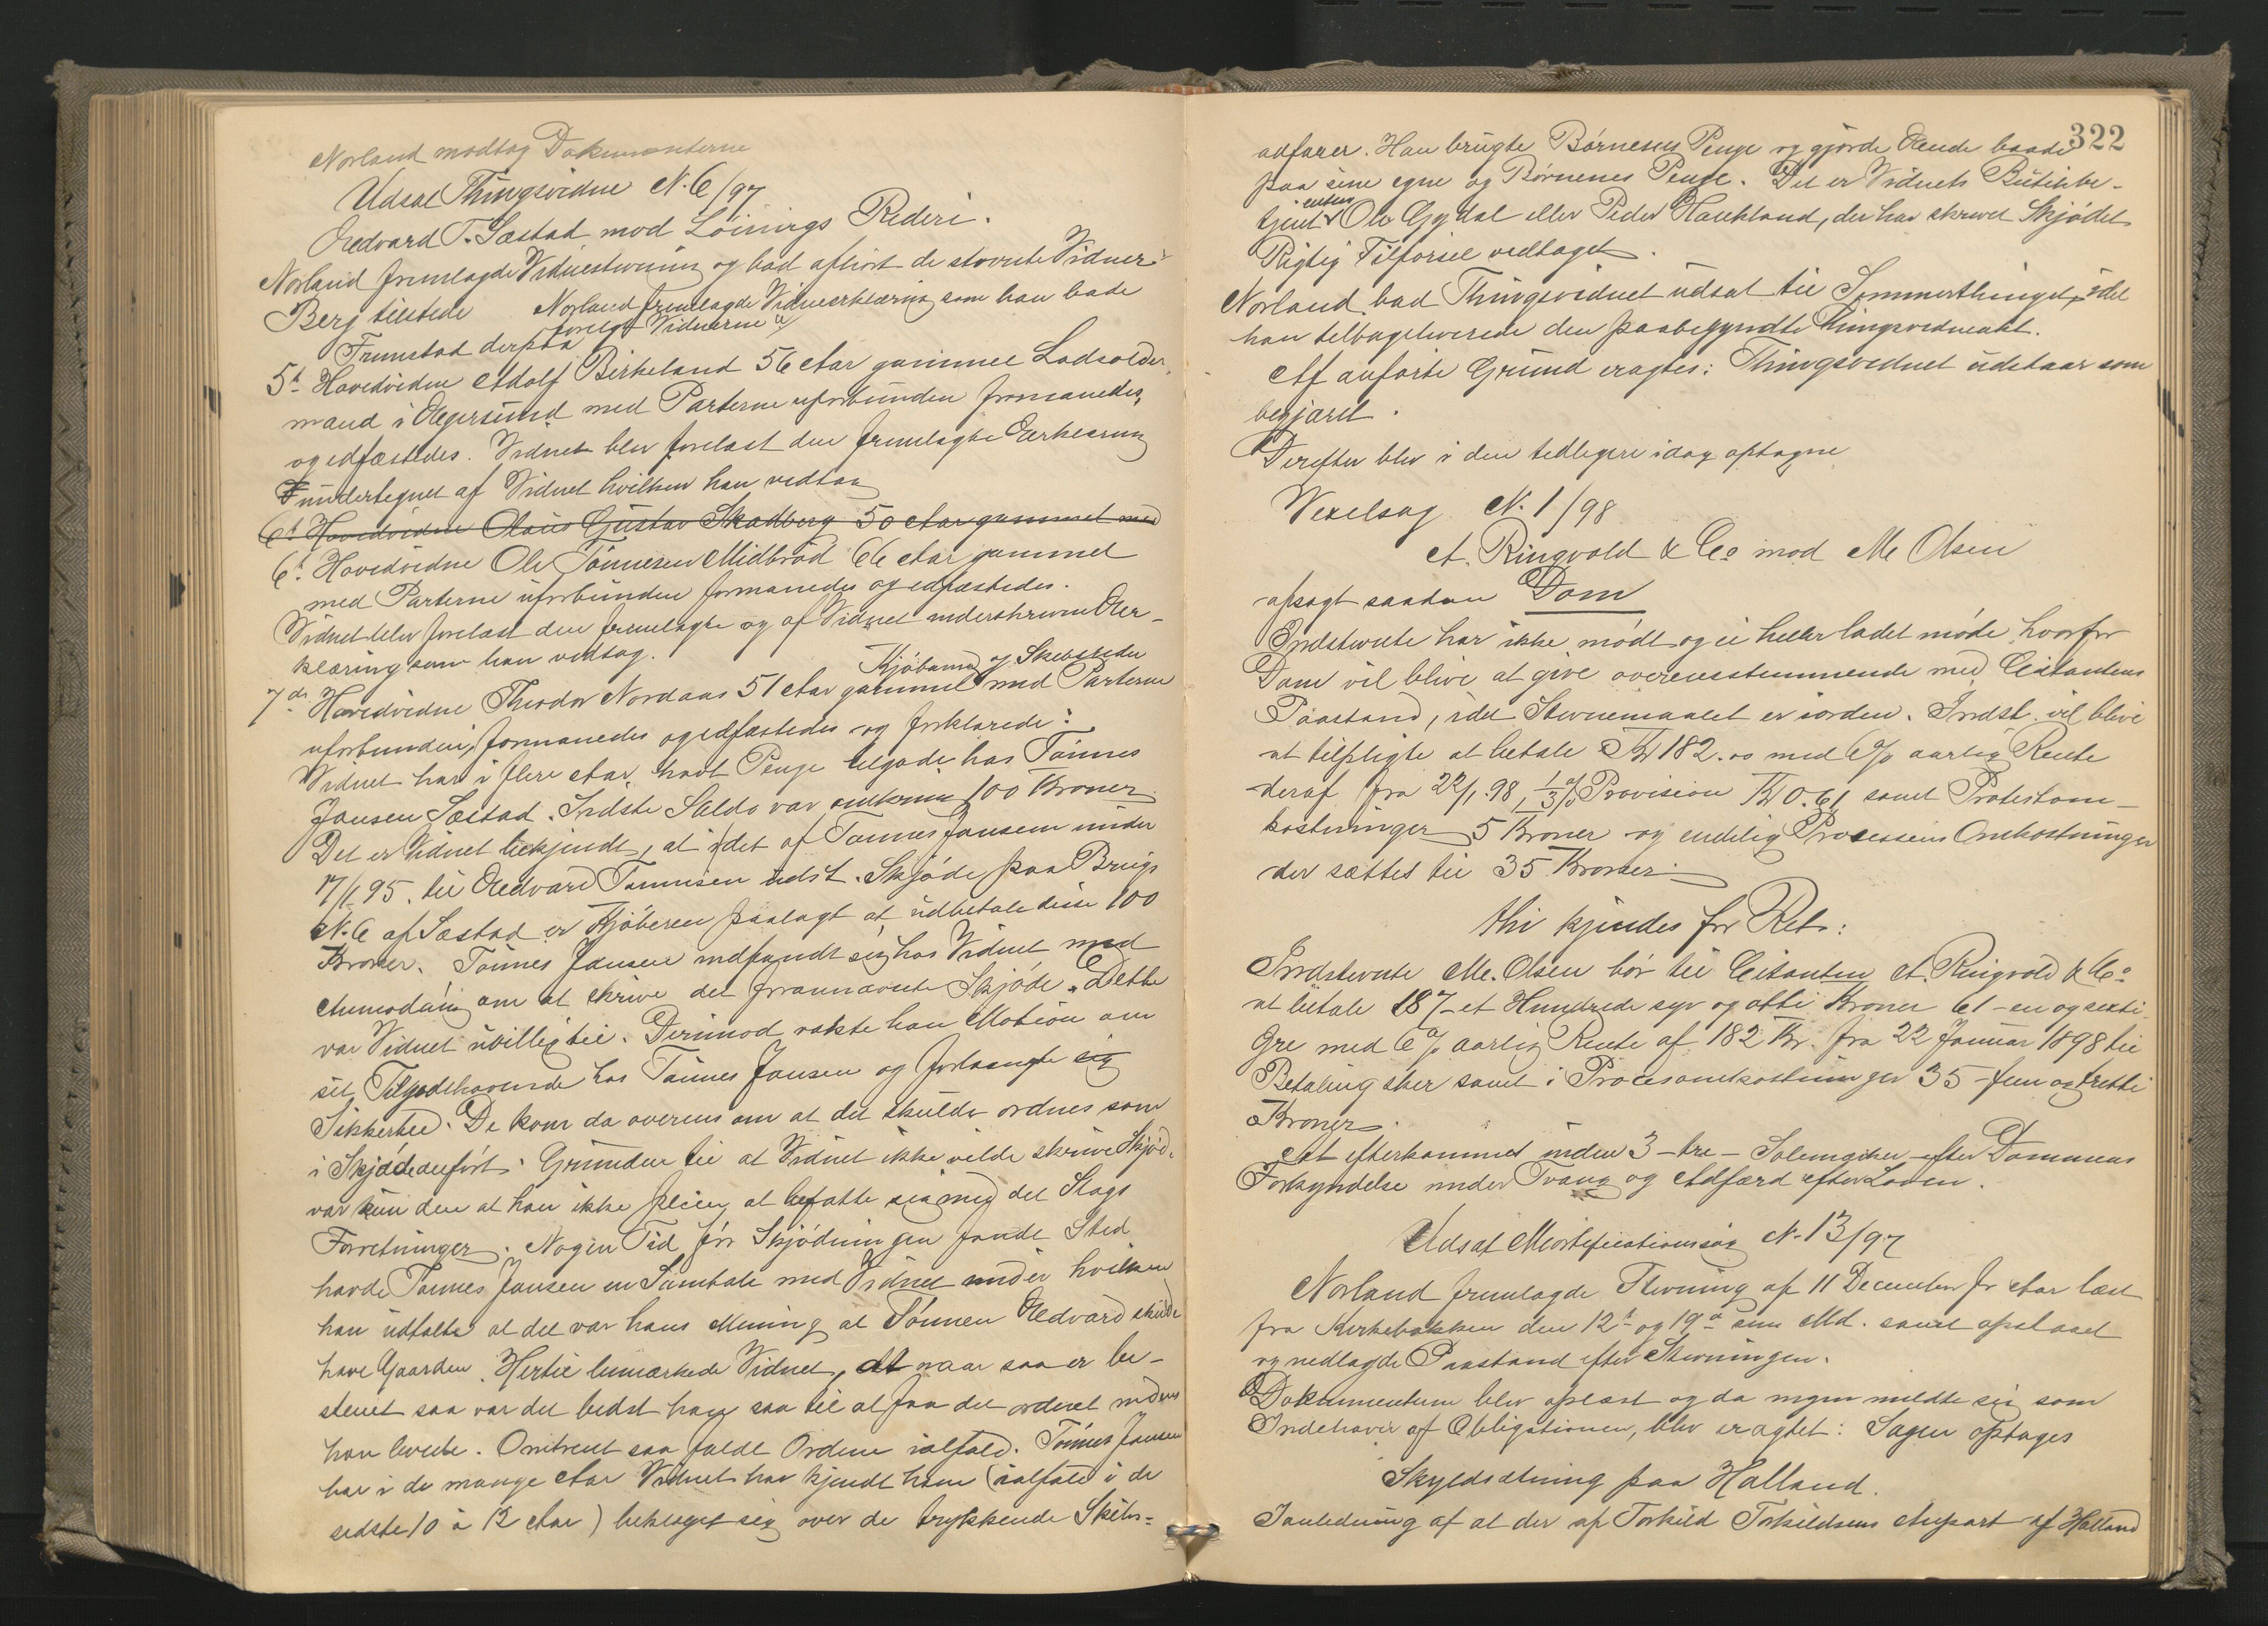 Norland modtog Dokumenterne
Udsat Thingsvidne N. 6/97
Aedvard T. Sæstad mod Løinings Rederi.
Norland fremlagde Vidnestevning og bad afhørt de stevnte Vidner
Berg tilstede Norland fremlagde Vidneerklæring som han bade
Frunstad derpaa forelagt Vidnerne
5te Hovedvidne Adolf Birkeland 56 Aar gammel Lodsolder-
mand i Aegersund med Parterne uforbunden formanedes
og edfæstedes. Vidnet blev forelæst den fremlagte Erklæring
undertegnet af Vidnet hvilken han vedtog
6te Hovedvidne Olaus Gustav Skadberg 50 Aar gammel med
6te Hovedvidne Ole Tønnesen Midbrød 66 Aar gammel
med Parterne uforbunden formanedes og edfæstedes.
Vidnet blev forelæst den fremlagte og af Vidnet underskrevne Er-
klæring som han vedtog. Kjøbmand og Skibsreder
7de Hovedvidne Theodor Nordaas 51 Aar gammel med Parterne
uforbunden, formanedes og edfæstedes og forklarede:
Vidnet har i flere Aar havt Penge tilgode hos Tønnes
Jansen Sæstad. Sidste Saldo var omkring 100 Kroner
Det er Vidnet bekjendt, at i det af Tønnes Jansen under
17/1 95. til Aedvard Tønnesen udst. Skjøde paa Brugs
N. 6 af Sæstad er Kjøberen paalagt at udbetale disse 100
Kroner. Tønnes Jansen indfandt sig hos Vidnet med
Anmodning om at skrive det forannævnte Skjøde. Dette
var Vidnet uvillig til. Derimod vakte han Motion om
sit Tilgodehavende hos Tønnes Jansen og forlangte sig
Sikkerhed. De kom da overens om at det skulde ordnes som
i Skjødet anført. Grunden til at Vidnet ikke vilde skrive Skjød.
var kun den at han ikke pleier at befatte sig med det Slags
Forretninger. Nogen Tid før Skjødningen fandt Sted
havde Tønnes Jansen en Samtale med Vidnet under hvilken
han udtalte at det var hans Mening at Sønnen Aedvard skulde
have Gaarden. Hertil bemærkede Vidnet, at naar saa er be-
stemt saa var det bedst han saa til at faa det ordnet medens
han levede. Omtrent saa faldt Ordene ialfald. Tønnes Jansen
har i de mange Aar Vidnet har kjendt ham (ialfald i de
sidste 10 à 12 Aar) beklaget sig over de trykkende Skibs-
322
adfærer. Han brugte Børnenes Penge og gjorde Ende baade
paa sine egne og Børnenes Penge. Det er Vidnets Butikbe-
tjent enten Ole Gydal eller Peder Haukland, der har skrevet Skjødet
Rigtig Tilførsel vedtaget.
Norland bad Thingsvidnet udsat til Sommerthinget, idet
han tilbageleverede den paabegyndte Thingsvidneakt.
Af anførte Grund eragtes: Thingsvidnet udstaar som
begjæret.
Derefter blev i den tidligere idag optagne
Vexelsag N. 1/98
A. Ringvold & Co mod M. Olsen
afsagt saadan Dom
Indstevnte har ikke mødt og ei heller ladet møde hvorfor
Dom vil blive at give overensstemmende med Citantens
Paastand, idet Stevnemaalet er iorden. Indst. vil blive
at tilpligte at betale Kr 182.00 med 6% aarlig Rente
deraf fra 22/1. 98, 1/3% Provision Kr 0.61 samt Protestom-
kostninger 5 Kroner og endelig Processens Omkostninger
der sættes til 35 Kroner.
thi kjendes for Ret:
Indstevnte M. Olsen bør til Citanten A. Ringvold & Co
at betale 187 - et Hundrede syv og otti Kroner 61 - en og sexti
Øre med 6% aarlig Rente af 182 Kr. fra 22 Januar 1898 til
Betaling sker samt i Procesomkostninger 35 - fem og tretti
Kroner.
At efterkommes inden 3 - tre - Solemærker efter Dommens
Forkyndelse under Tvang og Adfærd efter Loven.
Udsat Mortificationssag N. 13/97
Norland fremlagde Stevning af 11 December f Aar læst
fra Kirkebakken den 12te og 19de s. Md. samt opslaaet
og nedlagde Paastand efter Stevningen.
Dokumenterne blev oplæst og da ingen meldte sig som
Indehaver af Obligationen, blev eragtet: Sagen optages
Skyldsætning paa Halland.
I anledning af at der af Torkild Torkildsens Anpart af Halland